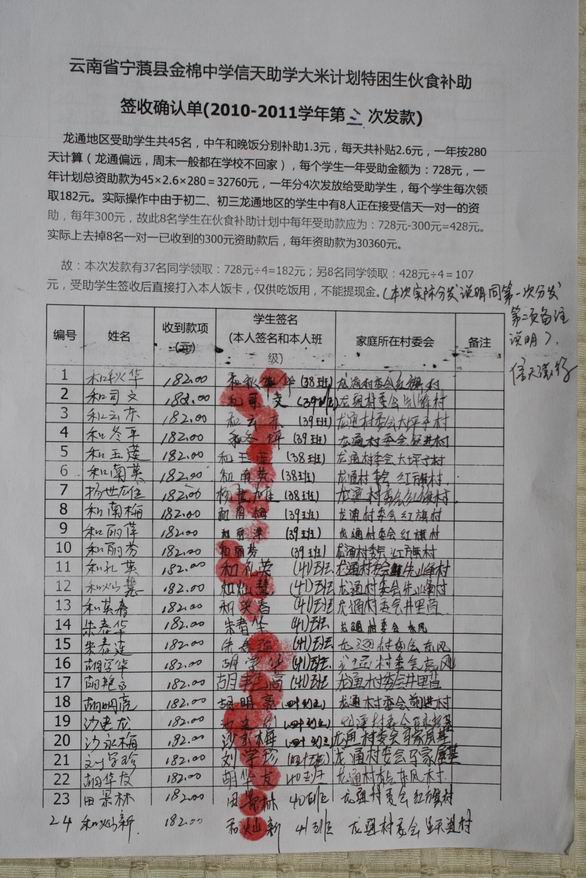 云南省宁蒗县金棉中学信天助学大米计划特困生伙食补助
签收确认单(2010-2011学年第三次发款)
龙通地区受助学生共45名，中午和晚饭分别补助1.3元，每天共补贴2.6元，一年按280
天计算（龙通偏远，周末一般都在学校不回家），每个学生一年受助金额为：728元，一
年计划总资助款为45×2.6×280＝32760元，一年分4次发放给受助学生，每个学生每次领
取182元。实际操作中由于初二、初三龙通地区的学生中有8人正在接受信天一对一的资
助，每年300元，故此8名学生在伙食补助计划中每年受助款应为：728元-300元=428元。
实际上去掉8名一对一已收到的300元资助款后，每年资助款为30360元。
故：本次发款有37名同学领取：728元÷4=182元；另8名同学领取：428元÷4＝107
元，受助学生签收后直接打入本人饭卡，仅供吃饭用，不能提现金。(本次实际分发说明同第一次分发
第二项备注
说明)。
编号 姓名 收到款项(元) 学生签名(本人签名和本人班级) 家庭所在村委会 备注
1 和秋华 182.00 (38班) 龙通村委会红旗村
2 和司文 182.00 和司文 (39班) 龙通村委会
3 和云东 182.00 (39班) 龙通村委会大坪子村
4 和冬平 182.00 (39班) 龙通村委会
5 和玉莲 182.00 和玉莲 (38班) 龙通村委会大坪子村
6 和南英 182.00 和南英 (38班) 龙通村委会红旗村
7 182.00 (38班) 龙通村委会红旗村
8 和南梅 182.00 和南梅 (39班) 龙通村委会红旗村
9 和丽萍 182.00 (39班) 龙通村委会红旗村
10 和丽芳 182.00 和丽芳 (39班) 龙通村委会红旗村
11 182.00 (41)班 龙通村委会先锋村
12 182.00 (41)班 龙通村委会先锋村
13 和英春 182.00 和英春 (41)班 龙通村委会
14 朱春华 182.00 朱春华 (41)班 龙通村委会东风
15 朱春莲 182.00 (41)班 龙通村委会东风
16 182.00 (41)班 龙通村委会东风
17 182.00 (41)班 龙通村委会
18 胡明亮 182.00 胡明亮 龙通村委会前进村
19 沙建龙 182.00 龙通村委会
20 沙永梅 182.00 沙永梅 龙通村委会
21 刘学珍 182.00 刘学珍 龙通村委会
22 胡华友 182.00 胡华友 40班 龙通村委会东风村
23 田景林 182.00 田景林 40班 龙通村委会红旗村
24 和灿新 182.00 和灿新 41班 龙通村委会